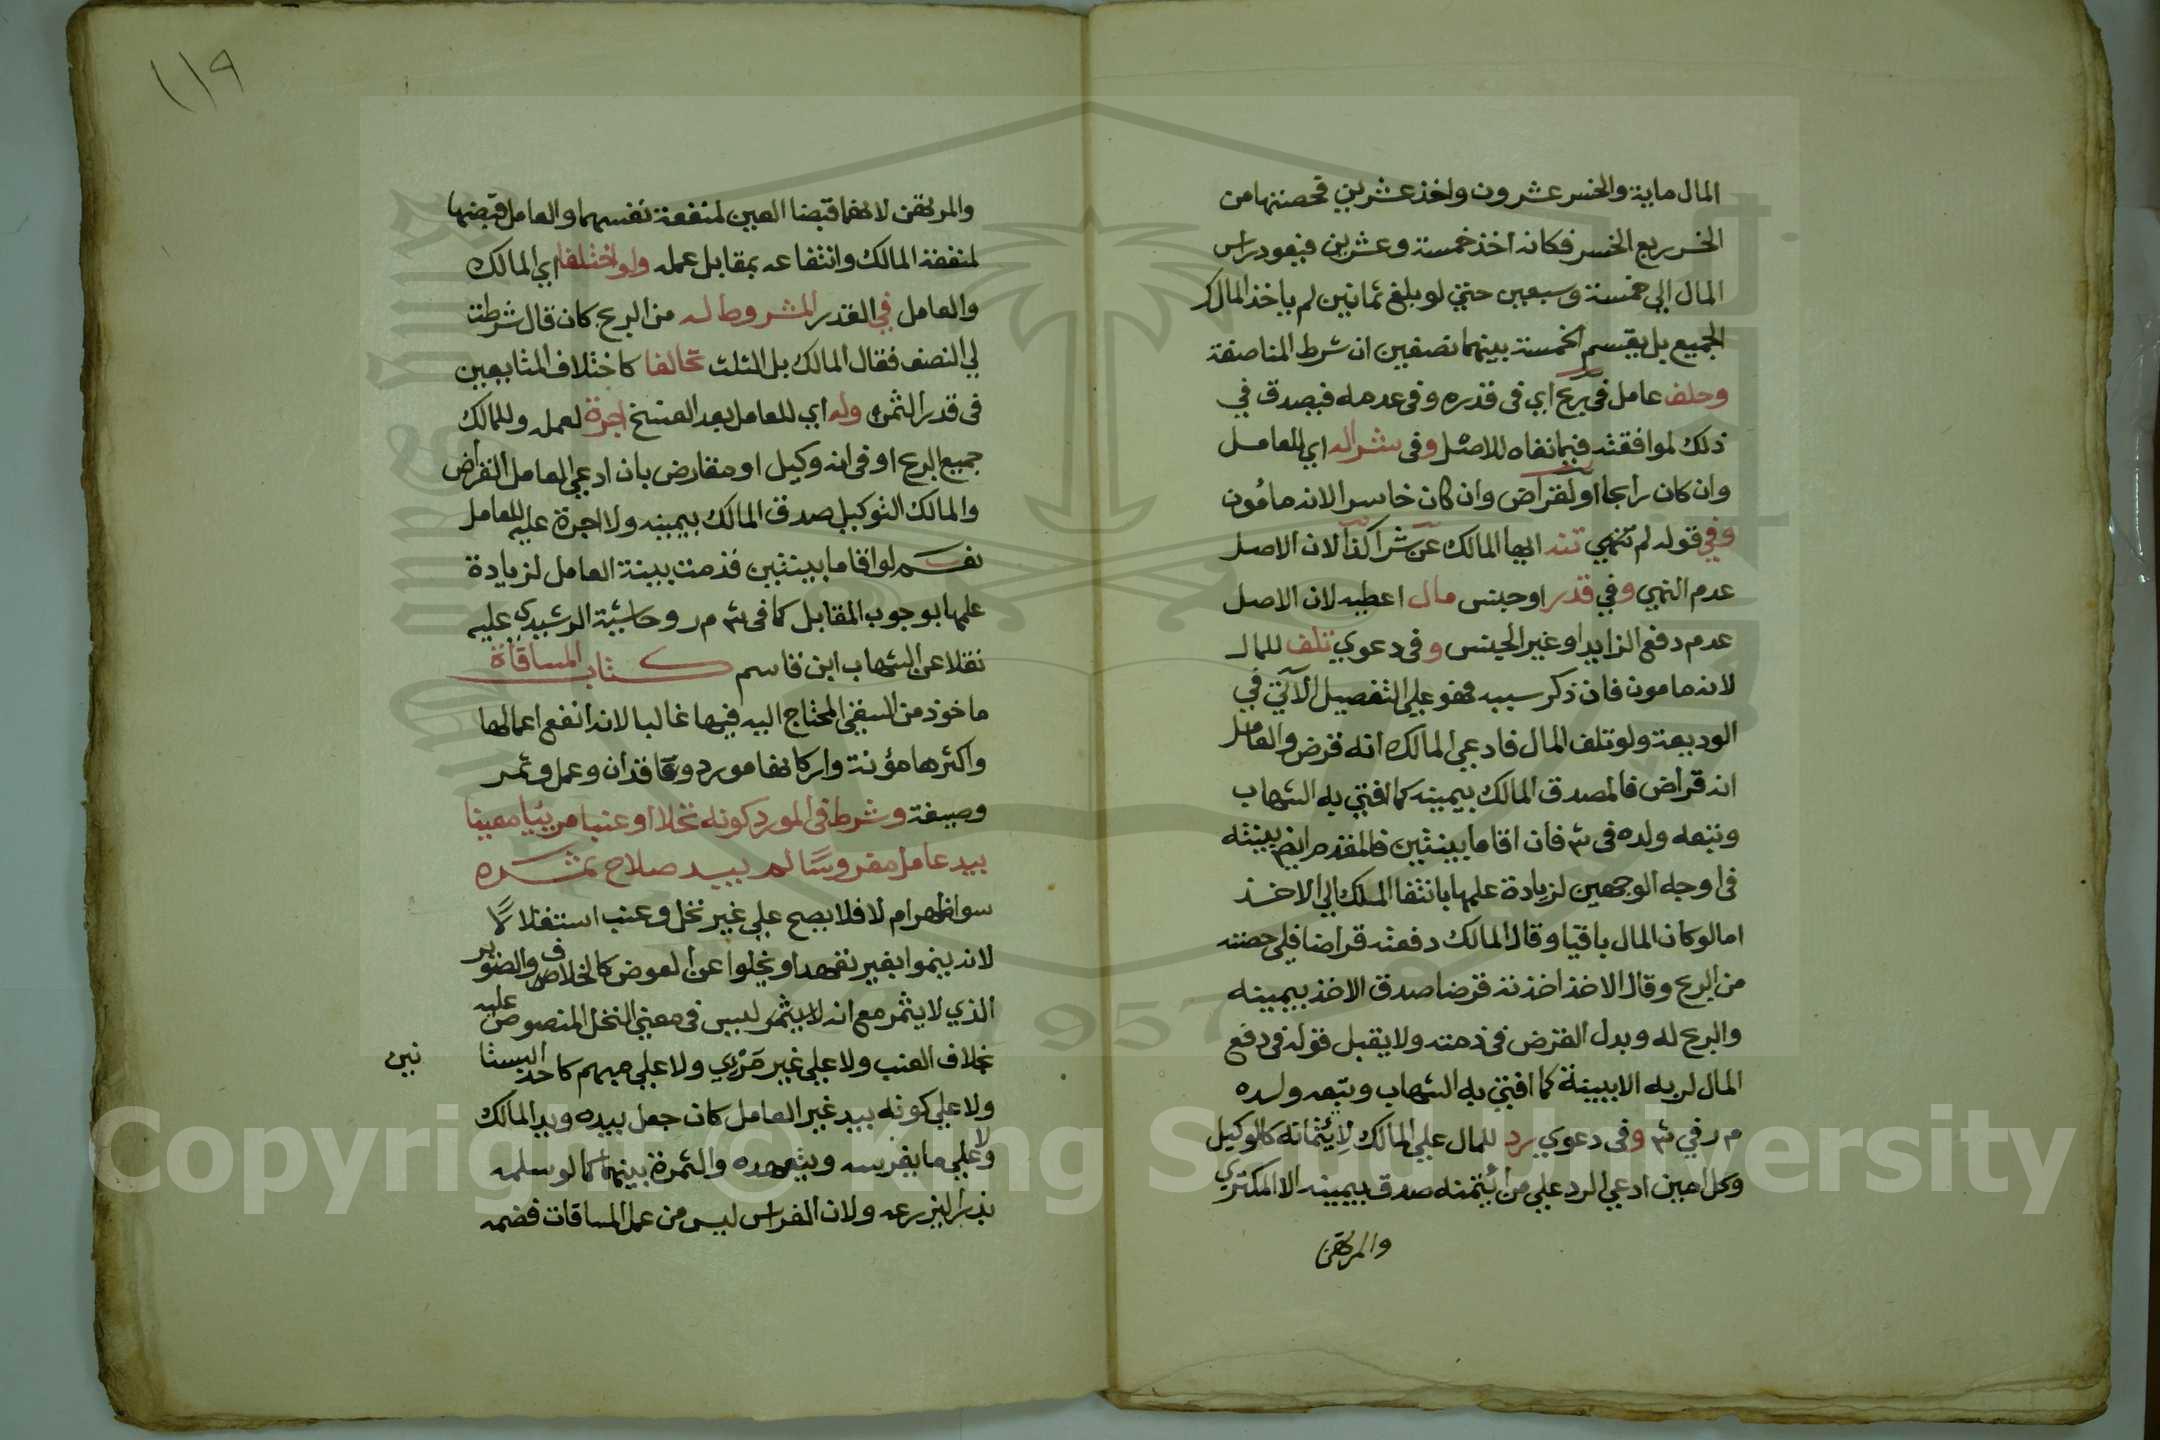 المال ماية والخسر عشرون واخذ عشرين فحصتها من
الخسر ربع الخسر فكانه اخذ خمسة وعشرين فيعود راس
المال الى خمسة وسبعين حتي لو بلغ ثمانين لم ياخذ المالك
الجميع بل يقسم الخمسة بينهما نصفين ان شرط المناصفة
وحلف عامل في ربح اي في قدره وفي عدمه فيصدق في
ذلك لموافقته فيما نفاه للاصل وفي شرا له اي للعامل
وان كان رابحا او لقراض وان كان خاسرا لانه مامون
وفي قوله لم تنهني ايها المالك عن شرا كذا لان الاصل
عدم النهي وفي قدر او جنس مال اعطيه لان الاصل
عدم دفع الزايد او غير الجنس وفي دعوي تلف للمال
لانه مامون فان ذكر سببه فهو علي التفصيل الآتي في
الوديعة ولو تلف المال فادعي المالك انه قرض والعامل
انه قراض فالمصدق المالك بيمينه كما افتي به الشهاب
وتبعه ولده في شر فان اقاما بينتين فالمقدم بينته
في اوجه الوجهين لزيادة علمها بانتقا الملك الي الاخذ
اما لو كان المال باقيا وقال المالك دفعته قراضا فلي حصته
من الربح وقال الاخذ اخذته قرضا صدق الاخذ بيمينه
والربح له وبدل القرض في ذمته ولا يقبل قوله في دفع
المال لربه الا ببينة كما افتي به الشهاب وتبعه ولده
م ر في شر وفي دعوي رد للمال علي المالك لائتمانه كالوكيل
وكل امين ادعي الرد علي من ائتمنه صدق بيمينه الا المكتري
والمرتهن
١١٩
والمرتهن لانهما قبضا العين لمنفعة نفسهما والعامل قبضها
لمنفعة المالك وانتفاعه بمقابل عمله ولو اختلفا اي المالك
والعامل في القدر المشروط له من الربح كان قال شرطت
لي النصف فقال المالك بل الثلث تحالفا كاختلاف المتابعين
في قدر الثمن وله اي للعامل بعد الفسخ اجرة لعمله وللمالك
جميع الربح او في انه وكيل او مقارض بان ادعي العامل القراض
والمالك التوكيل صدق المالك بيمينه ولا اجرة عليه للعامل
نعم لو اقاما بينتين قدمت بينة العامل لزيادة
علمها بوجوب المقابل كما في شر م ر وحاشية الرشيدي عليه
نقلا عن الشهاب ابن قاسم كتاب المساقاة
ماخوذ من السقي المحتاج اليه فيها غالبا لانه انفع اعمالها
واكثرها مؤنة واركانها مورد وعاقدان وعمل وثمر
وصيغة وشرط في المورد كونه نخلا او عنبا مرييا معينا
بيد عامل مغروسا لم يبد صلاح ثمره
سوا ظهر ام لا فلا يصح علي غير نخل وعنب استقلالا
لانه ينموا بغير تعهد او يخلوا عن العوض كالخلاف والصنوبر
الذي لا يثمر مع انه لا يثمر ليس في معني النخل المنصوص عليه
بخلاف العنب ولا علي غير مرئي ولا علي مبهم كاحد البستا
نين
ولا علي كونه بيد غير العامل كان جعل بيده ويد المالك
ولا علي ما يغرسه ويتعهده والثمرة بينهما كما لو سلمه
بذرا ليزرعه ولان الغراس ليس من عمل المساقات فضمه